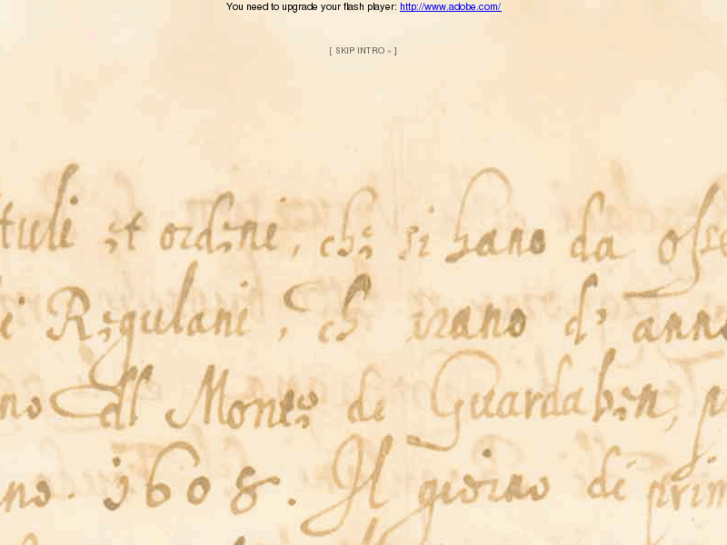 You need to upgrade your flash player: http://www.adobe.com/
[ SKIP INTRO » ]
tuli et ordeni, che si hano da osse
i Regulani, ch' d' anno
no dl Monte di Guardaben, p
no. 1608. Il giorno di prim